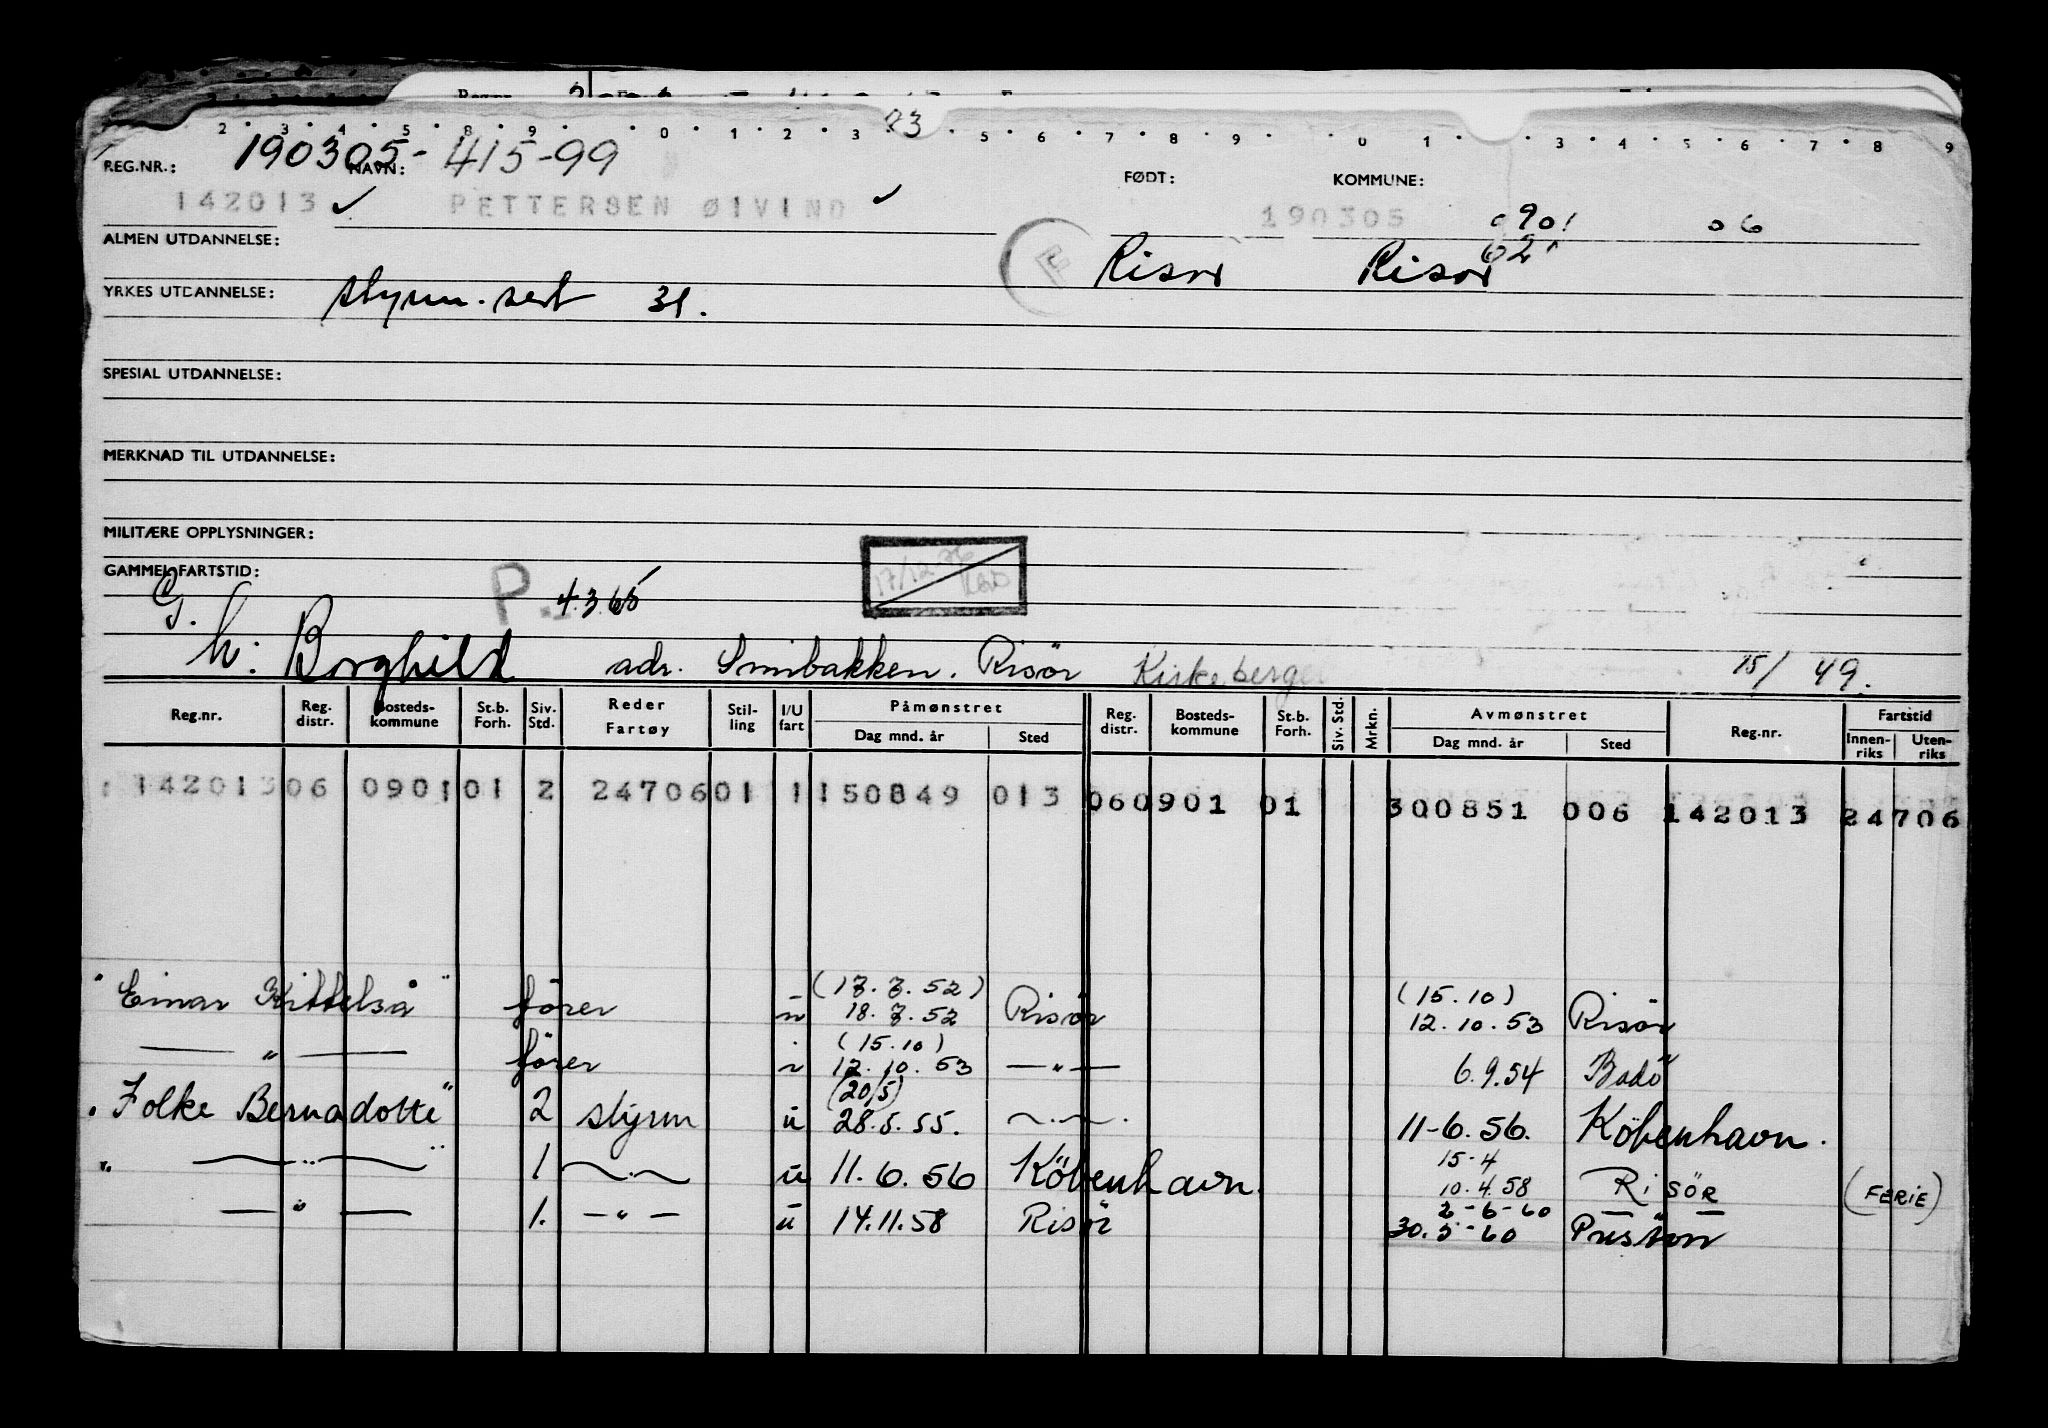 23
2 3 4 5 8 9 0 1 2 3 5 6 7 8 9 0 1 3 4 5 6 7 8 9
190305-415-99
REG.NR.: NAVN: FØDT: KOMMUNE:
142013 ✓ PETTERSEN ØIVIND ✓ 190305 0901 06
02
ALMEN UTDANNELSE: Risør Risør
YRKES UTDANNELSE: styrm. sert 31.
SPESIAL UTDANNELSE:
MERKNAD TIL UTDANNELSE:
MILITÆRE OPPLYSNINGER:
GAMMEL FARTSTID:
G. P. 4.3 65 17/12-76
h: Borghild adr. Smibakken. Risör Kirkeberge 15/ 49.
Reg.nr. Reg. distr. Bosteds-kommune St.b. Forh. Siv. Std. Reder Fartøy Stil-ling I/U fart Påmønstret Reg. distr. Bosteds-kommune St.b. Forh. Siv. Std. Mrkn. Avmønstret Reg.nr. Fartstid
Dag mnd. år Sted Dag mnd. år Sted Innen-riks Uten-riks
142013 06 0901 01 2 24706 01 1 150849 013 06 0901 01 300851 006 142013 24706
(17.7.52) (15.10)
"Einar Kittelså" förer u 18.7.52 Risör 12.10.53 Risör
(15.10)
— " — förer i 12.10.53 — " — 6.9.54 Bodö
(20/5)
"Folke Bernadotte" 2 styrm u 28.5.55. — " — 11-6.56. Köbenhavn.
15-4
" — " — " 1 — " — u 11.6.56 Köbenhavn. 10.4.58 RISÖR (FERIE)
2-6-60
— " — 1. — " — u 14.11.58 Risör 30.5-60 Preston